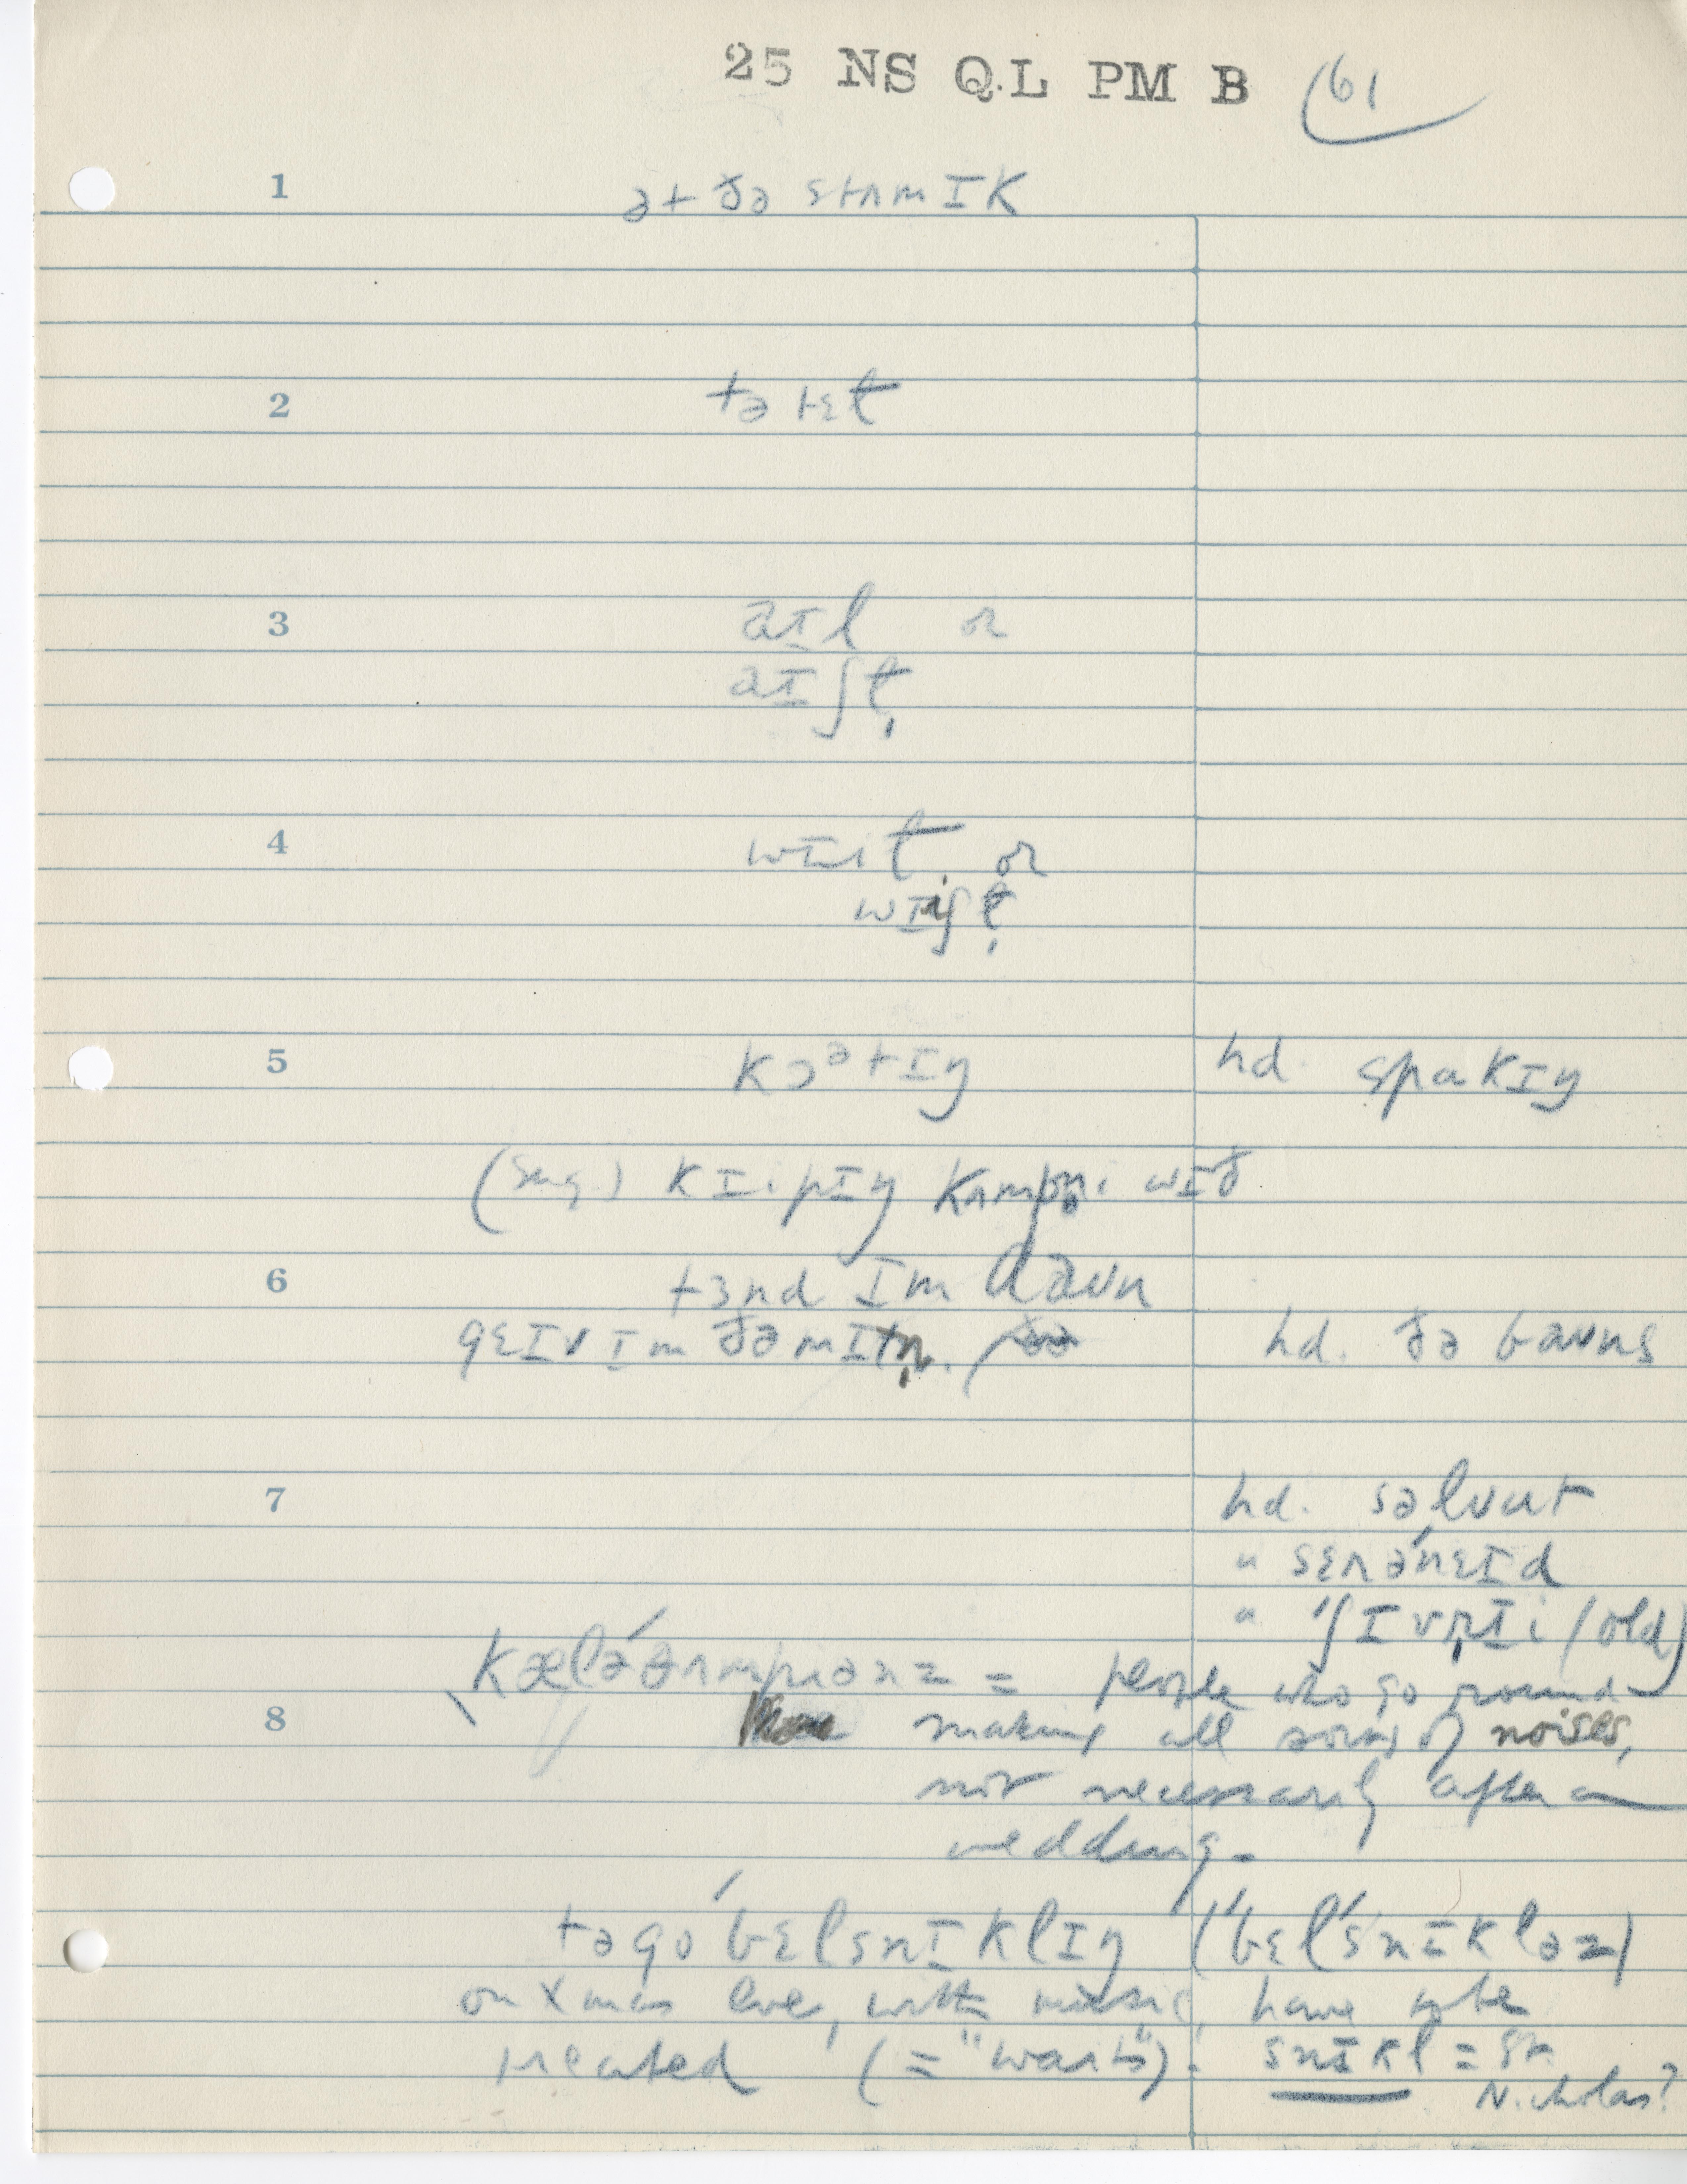 25 NS Q.L PM B 61
1 ət ðə stʌmɪk
2
3 aɪl or
aɪʃt̩
4 or
5 kɔᵊtɪŋ hd. spakɪŋ
kɪ·pɪŋ kʌmpn̩i wɪð
6 tɜnd ɪm daʊn
gɛɪv ɪm ðə mɪtn̩. hd. ðə baʊns
7 hd. səlvut
" sɛrənɛɪd
" ʃɪvrɪi (old)
= people who go round
8 making all sorts of noises,
not necessarily after a
wedding.
tə go bɛlsnɪklɪŋ (bɛlsnɪkləz)
on Xmas Eve, with music, have to be
treated (= "waits"). snɪkl = St.
Nicholas?